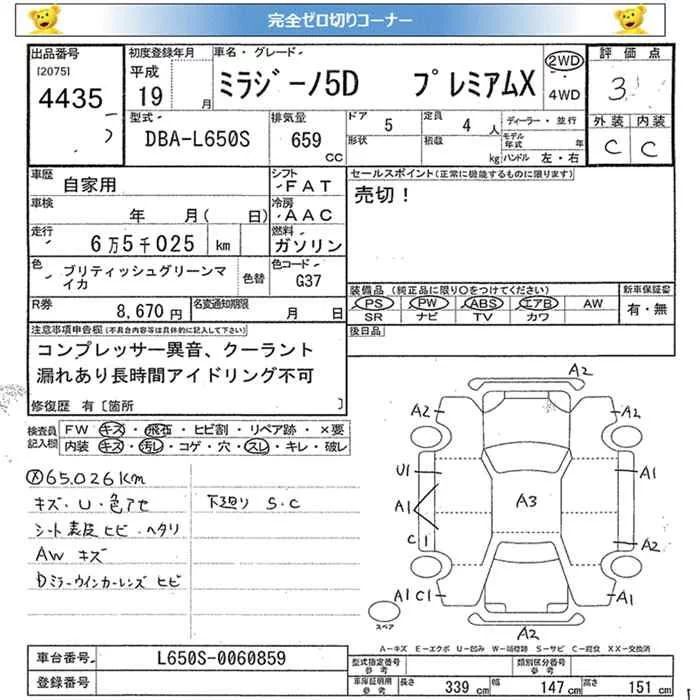 完全ゼロ切りコーナー
出品番号
[2075]
4435
初度登録年月
平成
19 月
車名・グレード
ミラジーノ5D プレミアムX
2WD
4WD
評価点
3
外装 内装
C C
型式
DBA-L650S
排気量
659
CC
ドア
5
定員
4 人
形状
積載
kg
ディーラー・並行
モデル年式 年
ハンドル 左・右
車歴
自家用
シフト
FAT
車検
年 月( 日)
冷房
AAC
走行
6万5千025 km
燃料
ガソリン
色
ブリティッシュグリーンマイカ
色替
色コード
G37
R券
8,670 円
名変通知期限
月 日
セールスポイント(正常に機能するものに限ります)
売切!
装備品(純正品に限り○をつけてください)
PS PW ABS エアB AW
SR ナビ TV カワ
新車保証書
有・無
後日品
注意事項申告欄(不具合内容等は具体的に記入して下さい)
コンプレッサー異音、クーラント
漏れあり長時間アイドリング不可
修復歴 有〔箇所 〕
検査員記入欄
FW キズ・飛石・ヒビ割・リペア跡・×要
内装 キズ・汚レ・コゲ・穴・スレ・キレ・破レ
65.026Km
キズ・U・色アセ
下廻り S・C
シート表皮ヒビ・ヘタリ
AW キズ
Dミラーウインカーレンズ ヒビ
A2
A2
A2
U1
A1
A1
A3
C1
A2
A1 C1
A1
A2
スペア
A-キズ E-エクボ U-凹み W-補修跡 S-サビ C-腐食 XX-交換済
車台番号
L650S-0060859
登録番号
型式指定番号
参考
類別区分番号
参考
車庫証明用
参考
長さ 339 cm 幅 147 cm 高さ 151 cm